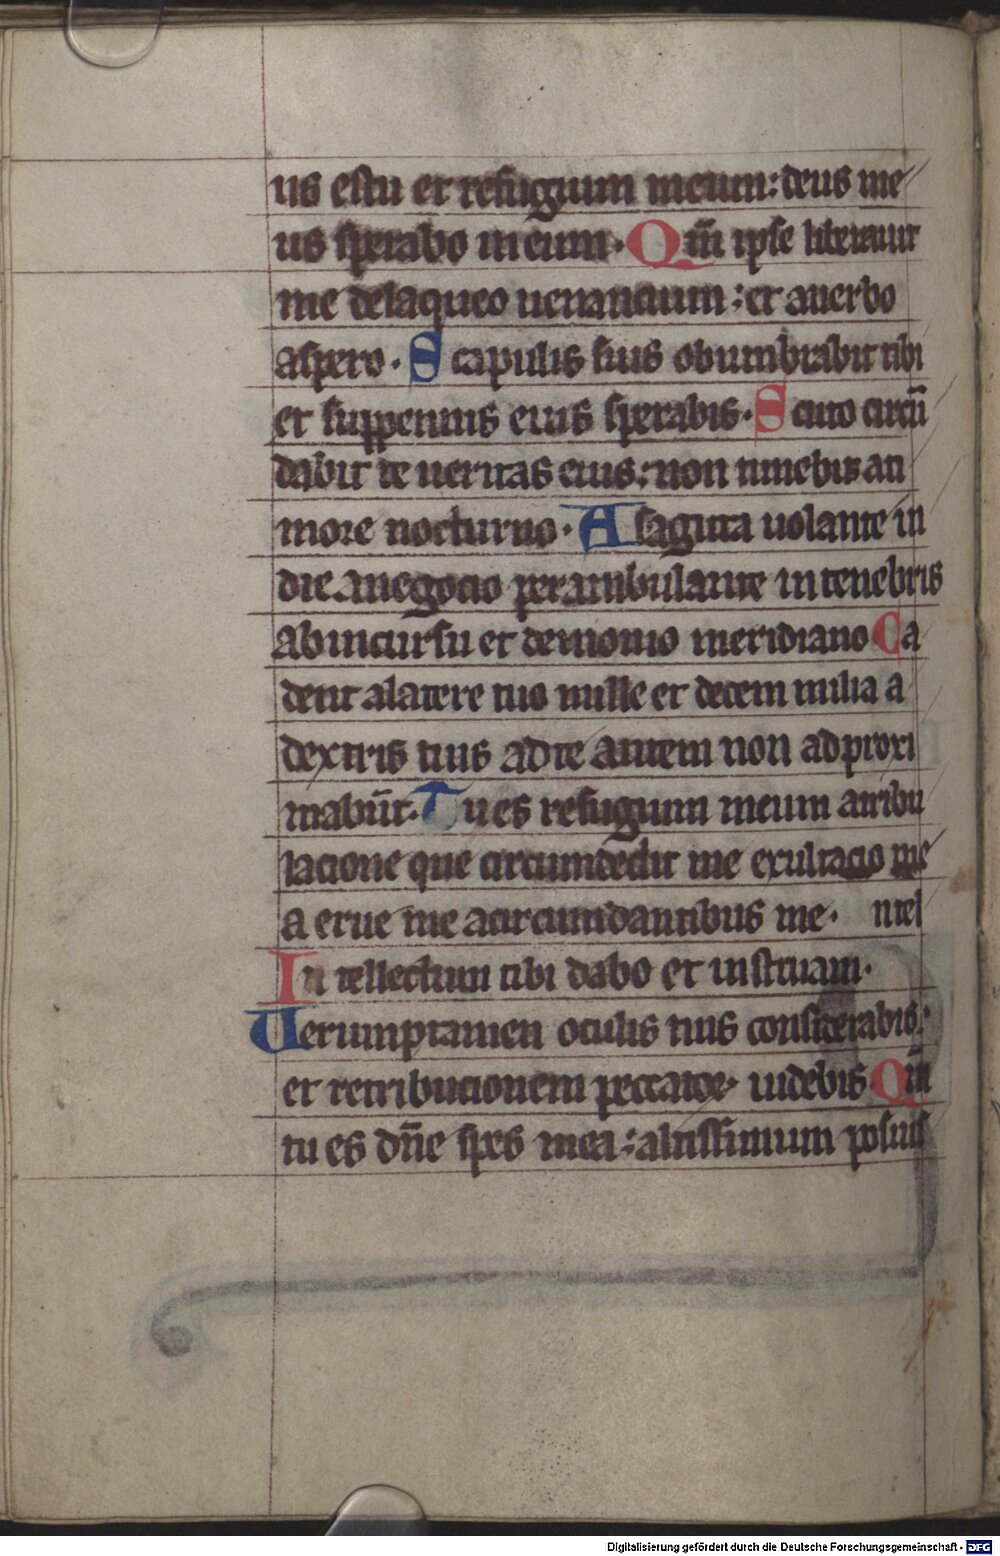 us es tu et refugium meum: deus me
us sperabo in eum. Qm̄ ipse liberauit
me de laqueo uenancium: et a uerbo
aspero. Scapulis suis obumbrabit tibi
et sub pennis eius sperabis. Scuto circū
dabit te ueritas eius: non timebis a ti
more nocturno. A sagitta uolante in
die a negocio perambulante in tenebris
ab incursu et demonio meridiano Ca
dent a latere tuo mille et decem milia a
dextris tuis ad te autem non adproxi
mabūt. Tu es refugium meum a tribu
lacione que circumdedit me exultacio me
a erue me a circumdantibus me. niel
Intellectum tibi dabo et instruam.
Uerumptamen oculis tuis considerabis:
et retribucionem peccator uidebis Qm̄
tu es dn̄e spes mea: altissimum posuis
Digitalisierung gefördert durch die Deutsche Forschungsgemeinschaft - DFG